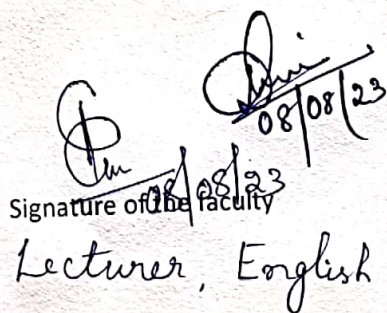 08/08/23
08/08/23
Signature of the faculty
Lecturer, English